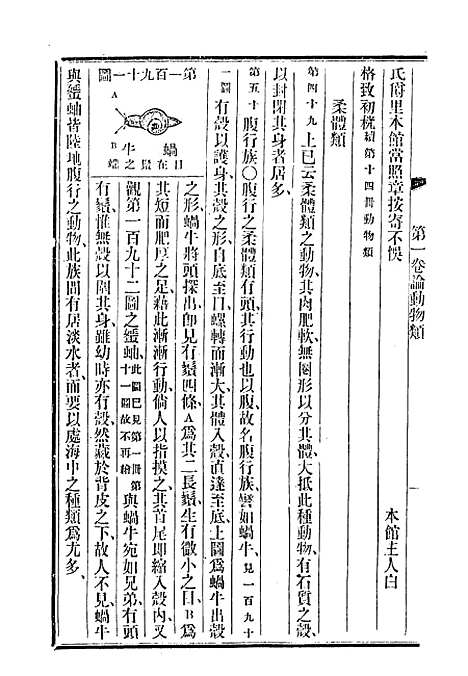 氏爵里本館當照章按寄不悞
本館主人白
第一卷論動物類
格致初桄續第十四冊動物類
柔體類
第四十九 上已云柔體類之動物其肉肥軟無圈形以分其體大抵此種動物有石質之殼
以封閉其身者居多、
第五十 腹行族○腹行之柔體類有頭其行動也以腹故名腹行族、譬如蝸牛、見一百九十
一圖 有殼以護身其殼之形自底至口螺轉而漸大其體入殼直達至底上圖爲蝸牛出殼
第一百九十一圖
A
B
蝸牛
目在鬚之端
之形、蝸牛將頭探出卽見有鬚四條、A爲其二長鬚生有微小之目、B爲
其短而肥厚之足、藉此漸漸行動、倘人以指摸之其首尾卽縮入殼內、又
觀第一百九十二圖之蜒蚰、此圖已見第一冊第十一圖故不再繪 與蝸牛宛如兄弟有頭
有鬚、惟無殼以圍其身雖幼時亦有殼然藏於背皮之下、故人不見、蝸牛
與蜒蚰皆陸地腹行之動物、此族間有居淡水者而要以處海中之種類爲尤多、